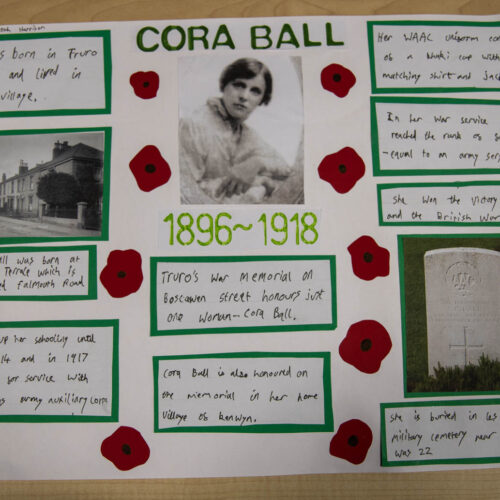 CORA BALL
1896~1918
Harrison
s born in Truro
and lived in
village.
ll was born at
Terrace which is
ed Falmouth Road
up her schooling until
14 and in 1917
for service with
s army auxiliary Corps
Truro's War Memorial on
Boscawen street honours just
one woman - Cora Ball.
Cora Ball is also honoured on
the memorial in her home
village of Kenwyn.
Her WAAC uniform con
of a khaki cap with
matching shirt and Jac
In her war service
reached the rank of S
-equal to an army ser
She won the Victory
and the British War
She is buried in Les
military cemetery near
was 22